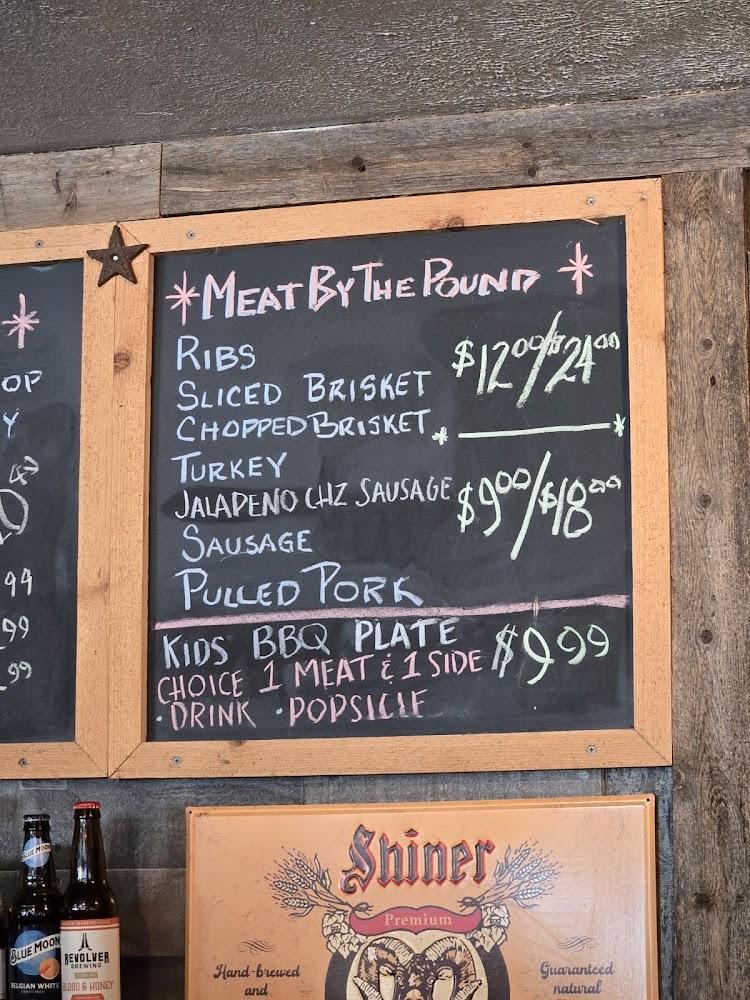 *MEAT BY THE POUND *
RIBS
SLICED BRISKET
$12.00/$24.00
CHOPPED BRISKET
TURKEY
JALAPENO CHZ SAUSAGE
$9.00/$18.00
SAUSAGE
PULLED PORK
KIDS BBQ PLATE
$9.99
CHOICE 1 MEAT & 1 SIDE
·DRINK ·POPSICLE
OP
Y
99
.99
.99
Shiner
Premium
Hand-brewed
and
Guaranteed
natural
BLUE MOON
BLUE MOON
BELGIAN WHITE
REVOLVER
BREWING
BLOOD & HONEY